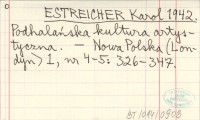 ESTREICHER Karol 1942.
Podhalańska kultura artys-
tyczna. — Nowa Polska (Lon-
dyn) I, nr 4-5: 326-347.